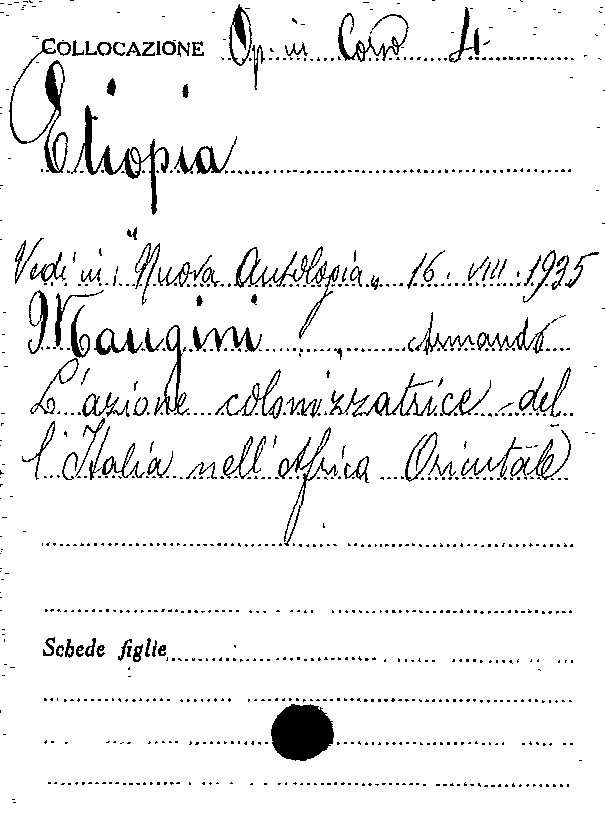 COLLOCAZIONE Op. in Corso 4
Etiopia
Vedi in: "Nuova Antologia" 16. VIII. 1935
Mangini, Armando
L'azione colonizzatrice del
l'Italia nell'Africa Orientale
Schede figlie